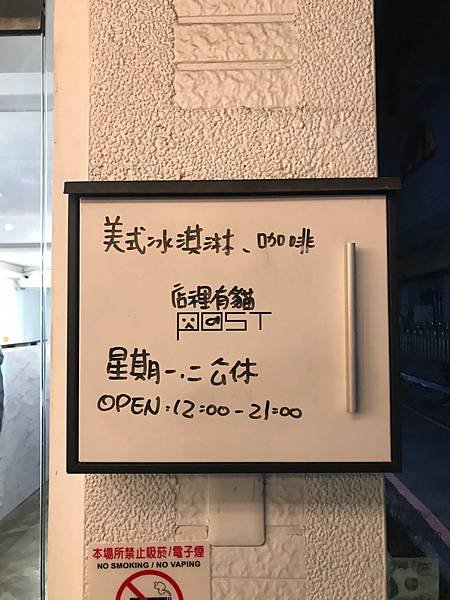 美式冰淇淋、咖啡
店裡有貓
POST
星期一.二 公休
OPEN:12:00-21:00
本場所禁止吸菸/電子煙
NO SMOKING / NO VAPING